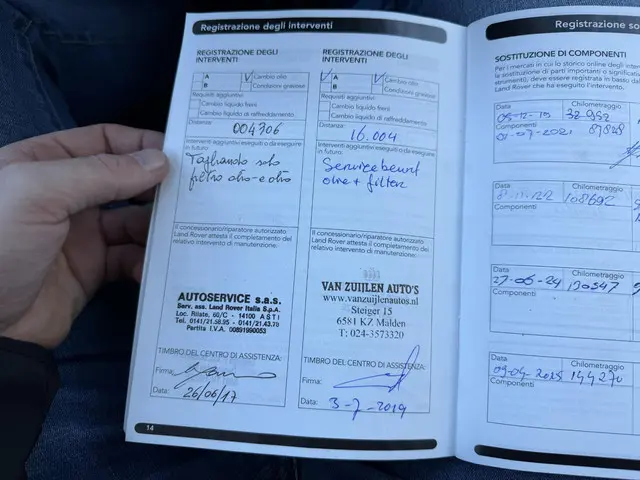 Registrazione degli interventi
REGISTRAZIONE DEGLI
INTERVENTI
A
Cambio olio
B
Condizioni gravose
Requisiti aggiuntivi:
Cambio liquido freni
Cambio liquido di raffreddamento
Distanza:
004306
Interventi aggiuntivi eseguiti o da eseguire
in futuro:
Tagliando solo
filtro olio e olio
Il concessionario/riparatore autorizzato
Land Rover attesta il completamento del
relativo intervento di manutenzione:
AUTOSERVICE S.a.s.
Serv. ass. Land Rover Italia S.p.A.
Loc. Rilate, 60/C - 14100 ASTI
Tel. 0141/21.58.95 - 0141/21.43.70
Partita I.V.A. 00891990053
TIMBRO DEL CENTRO DI ASSISTENZA:
Firma:
Data: 26/06/17
14
REGISTRAZIONE DEGLI
INTERVENTI
A
Cambio olio
B
Condizioni gravose
Requisiti aggiuntivi:
Cambio liquido freni
Cambio liquido di raffreddamento
Distanza:
16.004
Interventi aggiuntivi eseguiti o da eseguire
in futuro:
Servicebeurt
olie + filter
Il concessionario/riparatore autorizzato
Land Rover attesta il completamento del
relativo intervento di manutenzione:
VAN ZUIJLEN AUTO'S
www.vanzuijlenautos.nl
Steiger 15
6581 KZ Malden
T: 024-3573320
TIMBRO DEL CENTRO DI ASSISTENZA:
Firma:
Data: 3-7-2019
Registrazione
SOSTITUZIONE DI COMPONENTI
Per i mercati in cui lo storico online degli
la sostituzione di parti importanti o
strumento), deve essere registrata in basso
Land Rover che ha eseguito l'intervento.
Data
Chilometraggio
32.952
Componenti
01-07-2021
87828
Data
Chilometraggio
108692
Componenti
Data
Chilometraggio
27-06-24
130547
Componenti
Data
Chilometraggio
09-04-2025
144270
Componenti